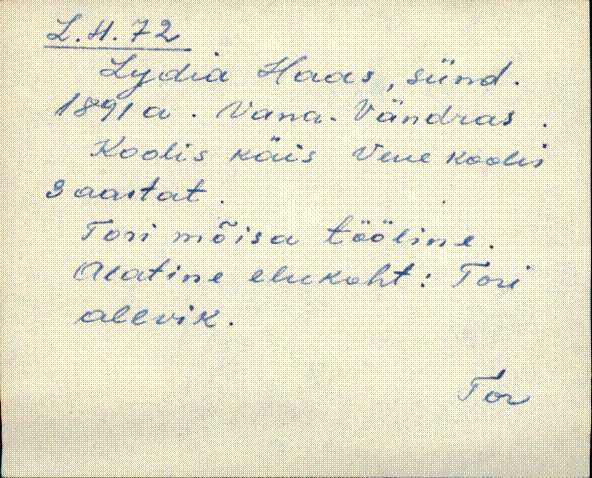 L.H.72
Lydia Haas, sünd.
1891 a. Vana-Vändras.
Koolis käis Vene koolis
3 aastat.
Tori mõisa tööline.
Alatine elukoht: Tori
alevik.
Tor